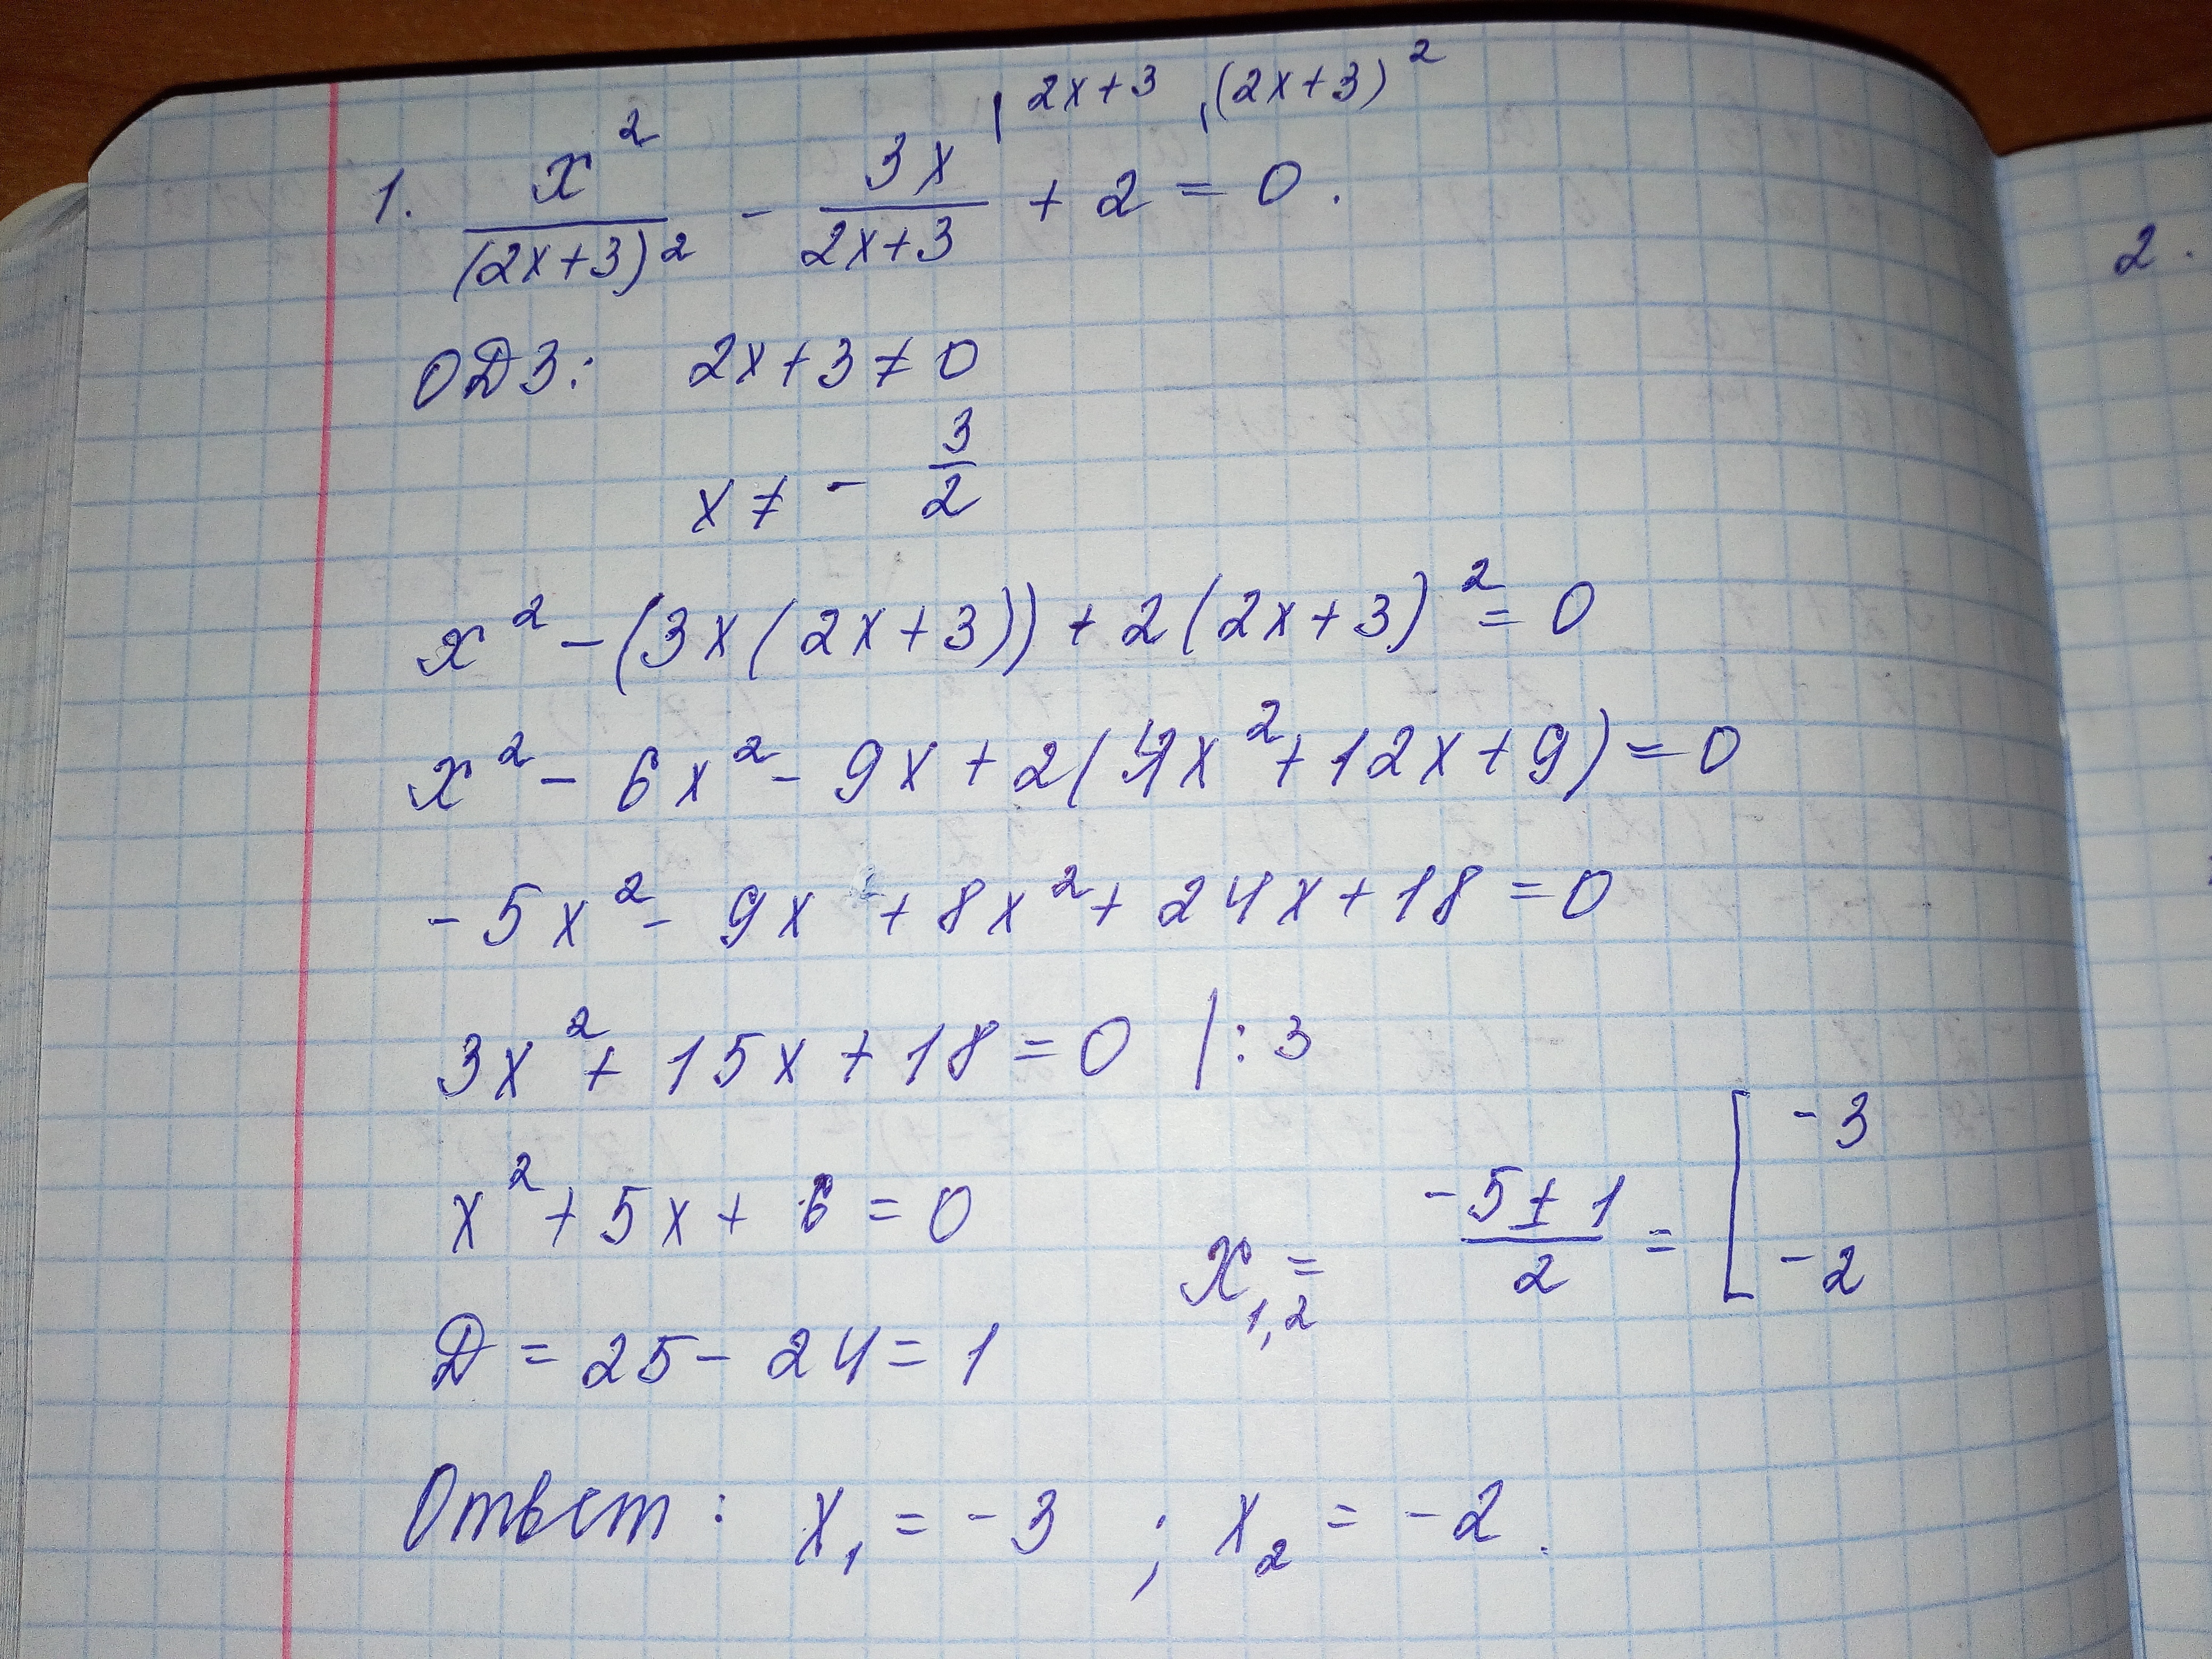 1. x²/(2x+3)² - 3x/(2x+3) |2x+3 + 2 |(2x+3)² = 0.
ОДЗ: 2x+3≠0
x ≠ - 3/2
x² - (3x(2x+3)) + 2(2x+3)² = 0
x² - 6x² - 9x + 2(4x² + 12x + 9) = 0
- 5x² - 9x + 8x² + 24x + 18 = 0
3x² + 15x + 18 = 0 |: 3
x² + 5x + 6 = 0
x₁,₂ = (-5 ± 1)/2 = [ -3
-2
D = 25 - 24 = 1
Ответ: x₁ = -3 ; x₂ = -2.
2.